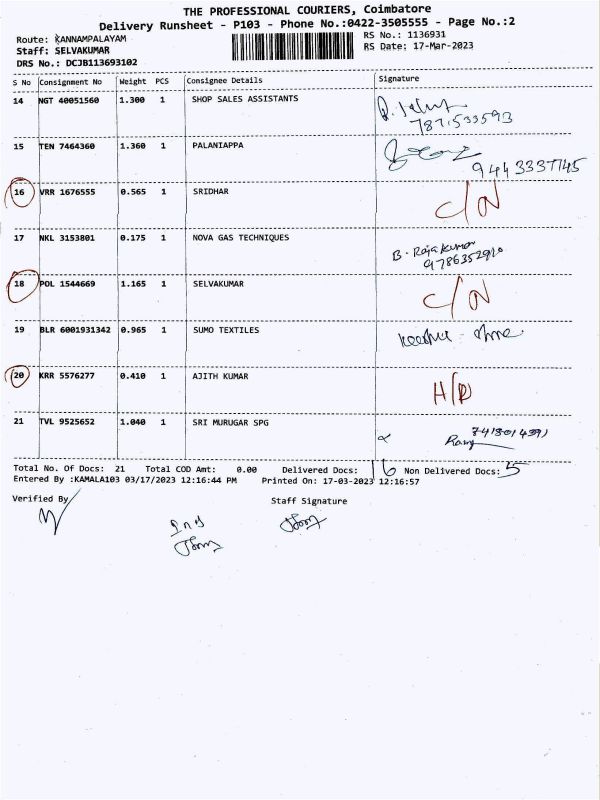 THE PROFESSIONAL COURIERS, Coimbatore
Delivery Runsheet - P103 - Phone No.:0422-3505555 - Page No.:2
Route: KANNAMPALAYAM
RS No.: 1136931
Staff: SELVAKUMAR
RS Date: 17-Mar-2023
DRS No.: DCJB113693102
S No Consignment No Weight PCS Consignee Details Signature
14 NGT 40051560 1.300 1 SHOP SALES ASSISTANTS
787.533593
15 TEN 7464360 1.360 1 PALANIAPPA
9443337745
16 VRR 1676555 0.565 1 SRIDHAR C/N
17 NKL 3153801 0.175 1 NOVA GAS TECHNIQUES
B. Rajakumar
18 POL 1544669 1.165 1 SELVAKUMAR C/N
19 BLR 6001931342 0.965 1 SUMO TEXTILES
20 KRR 5576277 0.410 1 AJITH KUMAR H/D
21 TVL 9525652 1.040 1 SRI MURUGAR SPG
Total No. Of Docs: 21 Total COD Amt: 0.00 Delivered Docs: 16 Non Delivered Docs: 5
Entered By :KAMALA103 03/17/2023 12:16:44 PM Printed On: 17-03-2023 12:16:57
Verified By
Staff Signature